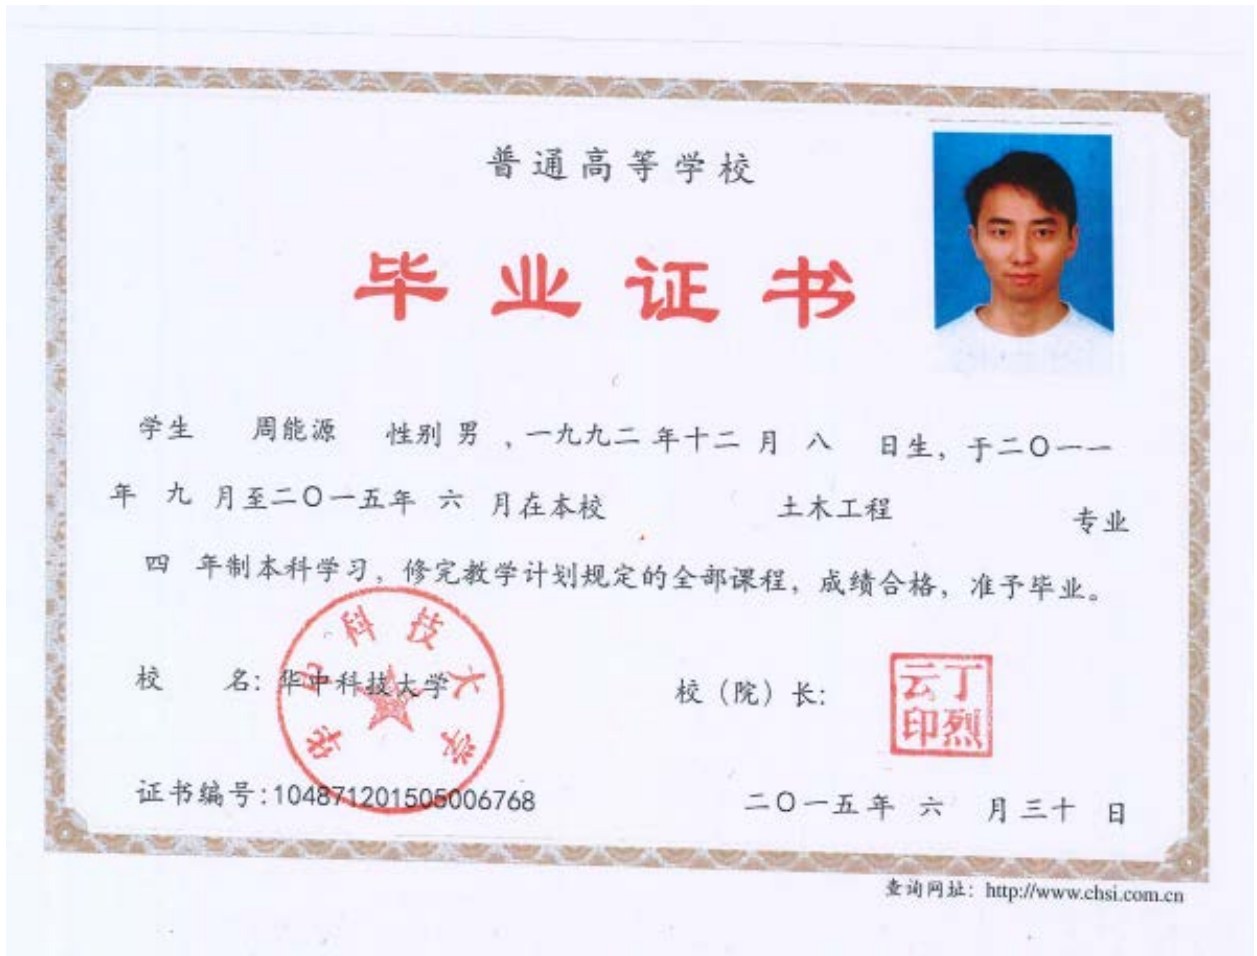 普通高等学校
毕业证书
学生 周能源 性别 男 ，一九九二 年十二 月 八 日生，于二〇一一
年 九 月至二〇一五年 六 月在本校 土木工程 专业
四 年制本科学习，修完教学计划规定的全部课程，成绩合格，准予毕业。
校 名：华中科技大学 校（院）长：
华中科技大学
丁烈云印
证书编号：104871201505006768 二〇一五年 六 月三十 日
查询网址：http://www.chsi.com.cn